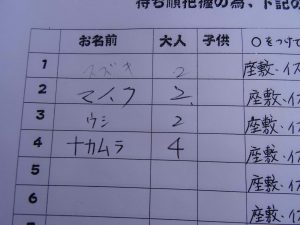 待ち順把握の為、下記の
お名前 大人 子供 ○をつけて
1 スズキ 2 座敷・イス
2 マイク 2 座敷・イス
3 ウシ 2 座敷・イス
4 ナカムラ 4 座敷・イス
5 座敷・イス
6 座敷・イ
座敷・イ